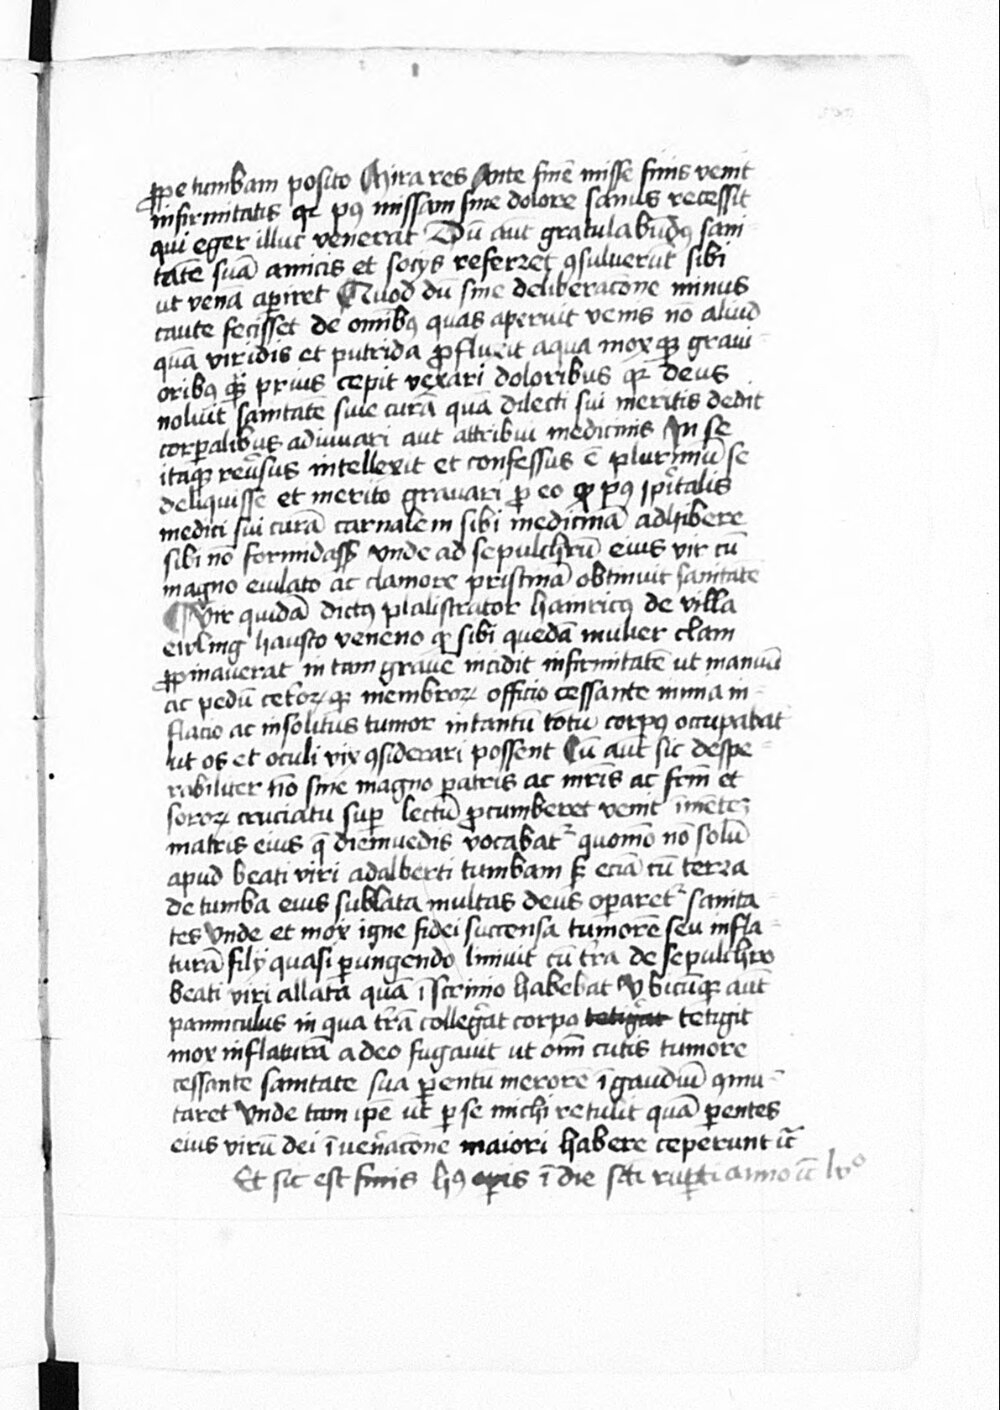 ꝓpe tumbam posito Mira res Ante finē misse finis venit
infirmitatis qꝛ pꝰ missam sine dolore sanus recessit
qui eger illuc venerat Dū aut̄ gratulabūdꝰ sani-
tatē suā amicis et socijs referret ꝯsuluerūt sibi
ut venā aꝑiret Quod dū sine deliberacōne minus
caute fecisset de omībꝫ quas aperuit venis nō aliud
quā viridis et putrida ꝓfluxit aqua moxqꝫ graui-
oribꝫ qꝫ̄ prius cepit vexari doloribus qꝛ deus
noluit sanitatē suie curā quā dilecti sui meritis dedit
corꝑalibus adiuuari aut attribui medicinis In se
itaqꝫ reūsus intellexit et confessus ē plurimū se
deliquisse et merito grauari ꝓ eo ꝙ pꝰ spūalis
medici sui curā carnalem sibi medicinā adhibere
sibi nō formidass̄ Unde ad sepulchrū eius vir cū
magno eiulato ac clamore pristinā obtinuit sanitatē
¶ Vir quidā dictꝰ plaustrator hainricꝰ de villa
eirling hausto veneno ꝙ sibi quedā mulier clam
ꝓpinauerat in tam grauē incidit infirmitatē ut manuū
ac pedū cet̄oꝝqꝫ membroꝝ officio cessante nimia in-
flacio ac insolitus tumor intantū totū corpꝰ occupabat
ut os et oculi vix ꝯsiderari possent Cū aut̄ sic despe-
rabiliter nō sine magno patris ac mr̄is ac frm̄ et
soroꝝ cruciatu suꝑ lectū ꝓcumberet venit
matris eius q̄ diemuedis vocabat᷑ quomō nō solū
apud beati viri adalberti tumbam sꝫ eciā cū terra
de tumba eius sublata multas deus oꝑaret᷑ sanita-
tes Unde et mox igne fidei succensa tumorē seu infla-
turā filij quasi ꝑungendo liniuit cū tr̄a de sepulchro
beati viri allata quā ī scrinio habebat Vbicūqꝫ aut̄
panniculus in qua tr̄ā collegāt corpꝰ tetigit
mox inflaturā adeo fugauit ut omī cutis tumore
cessante sanitate sua ꝑentū merorē ī gaudiū ꝯmu-
taret Unde tam ipē ut ꝑ se michi retulit quā ꝑentes
eius virū dei ī uen̄acōne maiori habere ceperunt ⁊c̄
Et sic est finis hꝰ oꝑis ī die sc̄i ruꝑti anno ⁊c̄ lvº